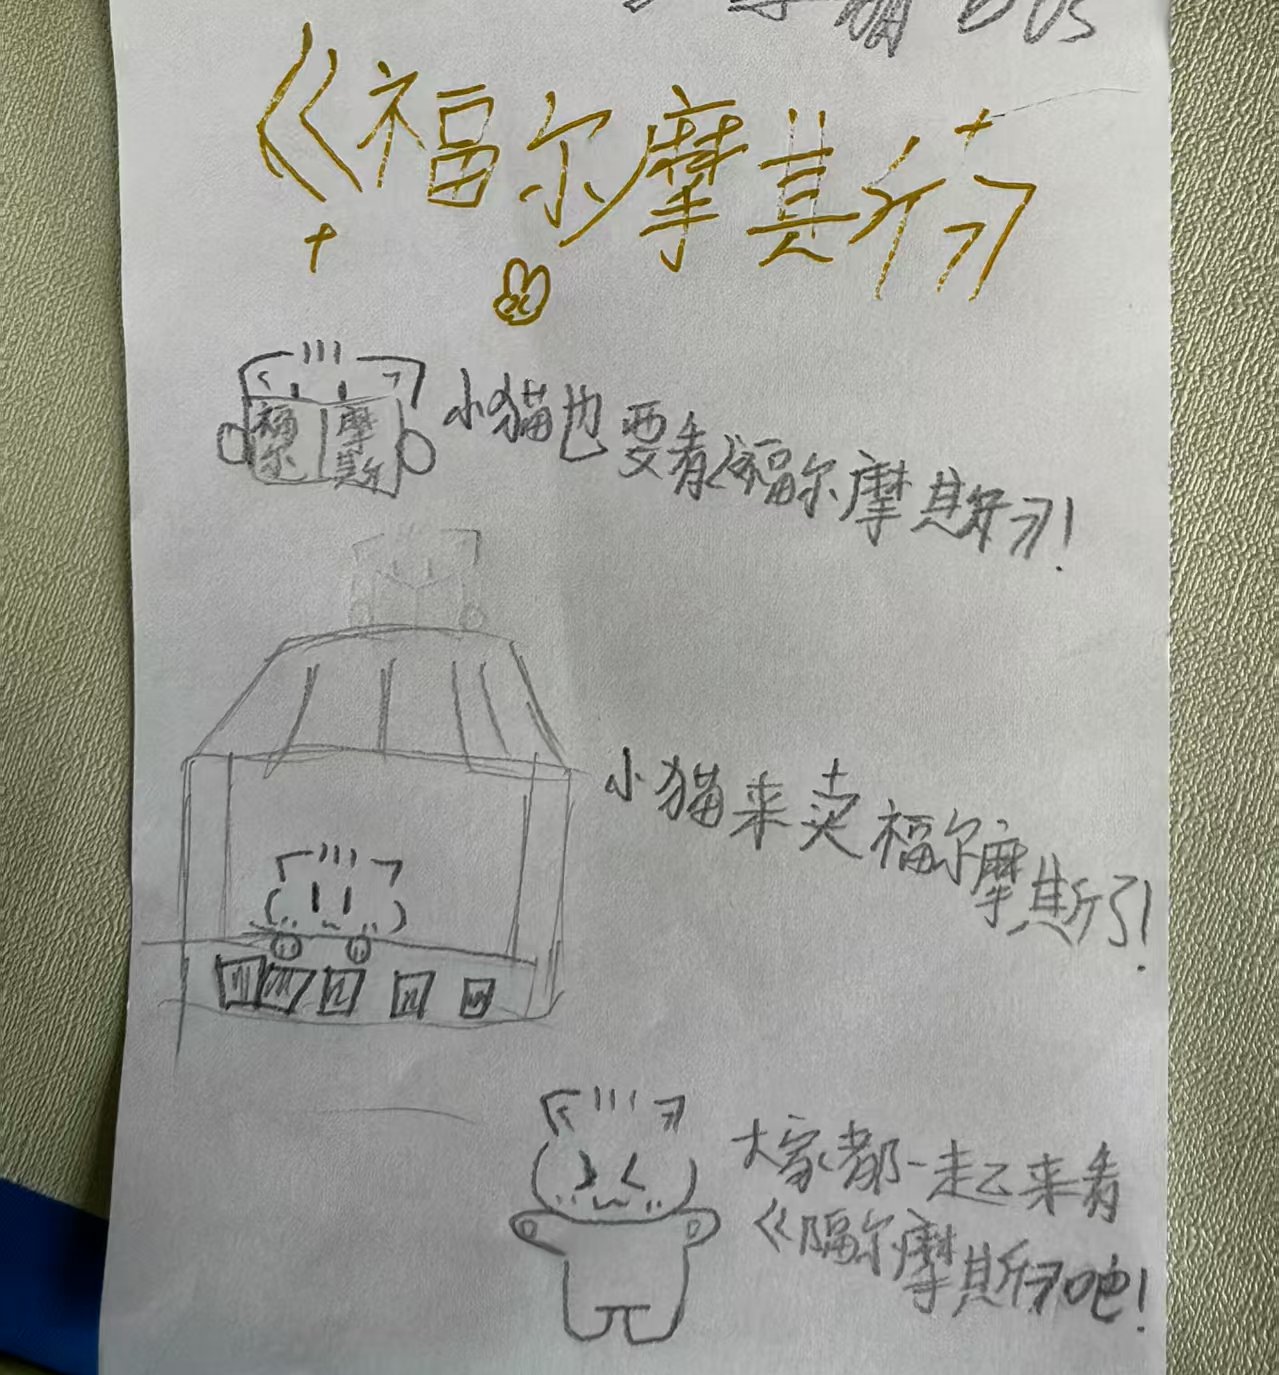 《福尔摩斯》
福尔 摩斯
小猫也要看《福尔摩斯》!
小猫来卖福尔摩斯了!
大家都一起来看
《福尔摩斯》吧!